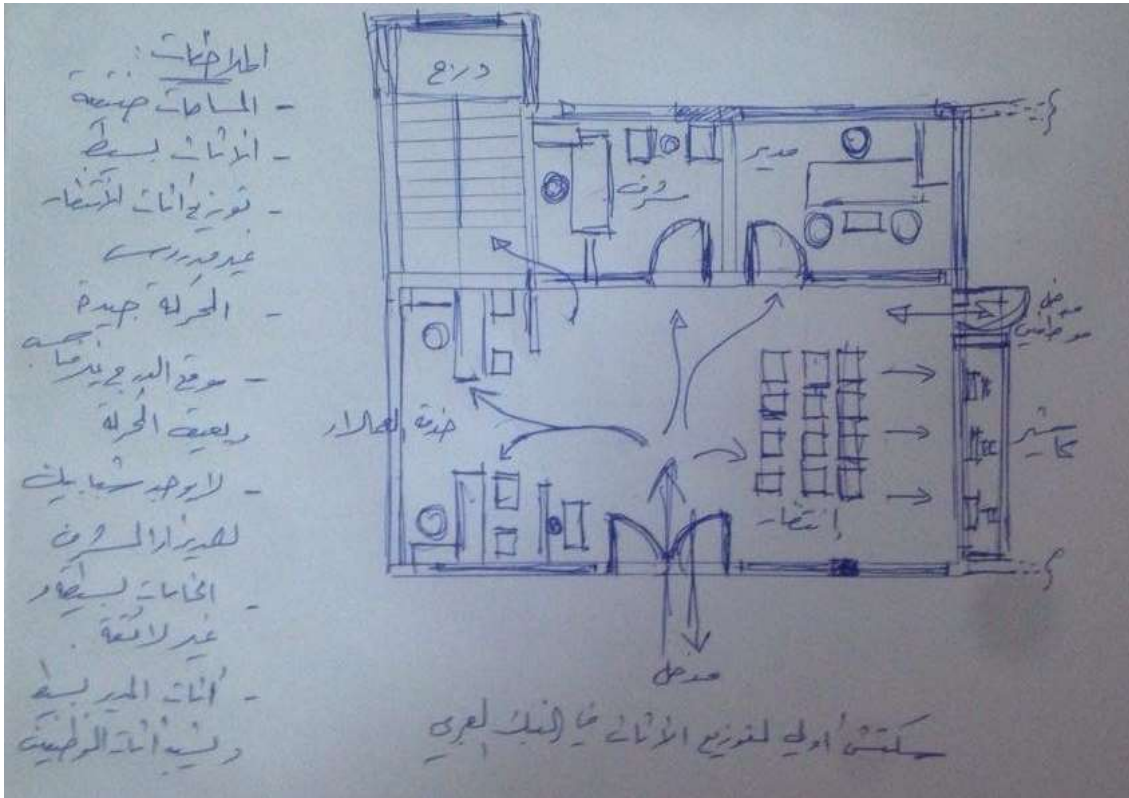 الملاحظات :
- المساحات ضيقة
- الأثاث بسيط
- توزيع أثاث الانتظار
غير مدروس
- الحركة جيدة
- موقع الدرج غير مناسب
ويعيق الحركة
- لا يوجد شبابيك
للمدير او المشرف
- الخامات بسيطة و
غير لائقة .
- أثاث المدير بسيط
ويشبه أثاث الموظفين
درج
مشرف
مدير
مدخل
موظفين
خدمة العملاء
كاشير
انتظار
مدخل
سكتش أولي لتوزيع الأثاث في البنك العربي